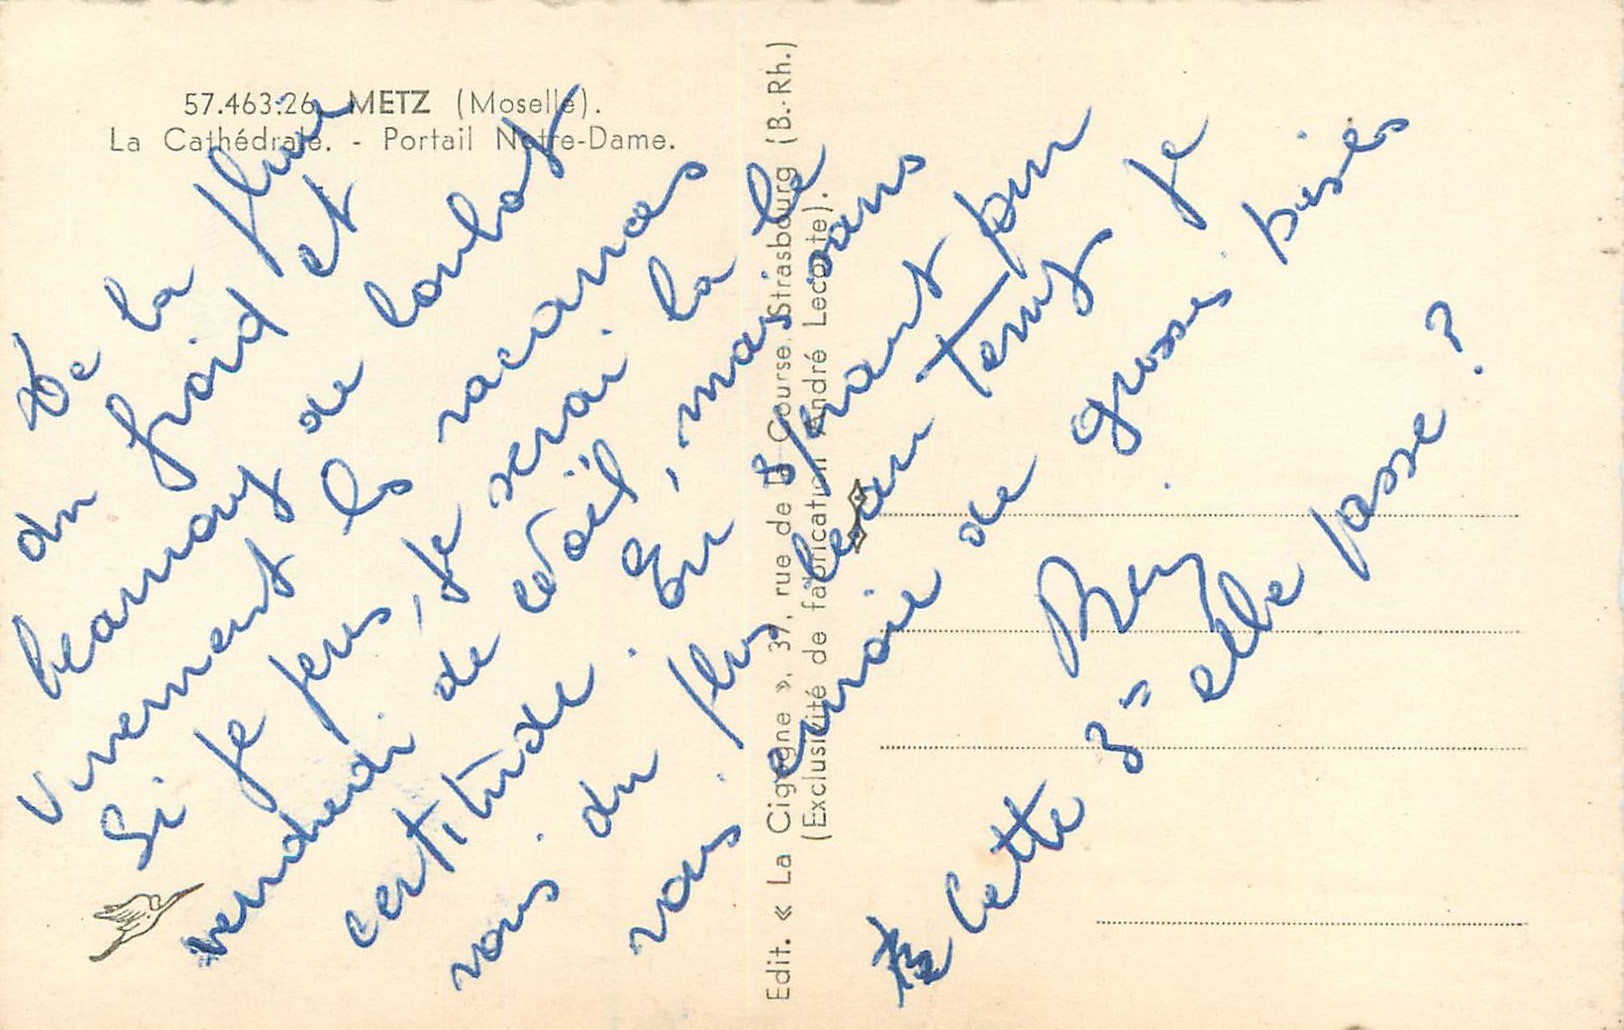 57.463.26. METZ (Moselle).
La Cathédrale. - Portail Notre-Dame.
De la pluie
du froid et
beaucoup de boulot
Vivement les vacances
Si je peux, je serai la le
vendredi de Noël, mais sans
certitude. En espérant pour
vous du plus beau temps je
vous envoie de grosses bises
Cette 3= elle passe ?
Edit. « La Cigogne », 37, rue de la Course, Strasbourg (B.-Rh.)
(Exclusivité de fabrication André Leconte).